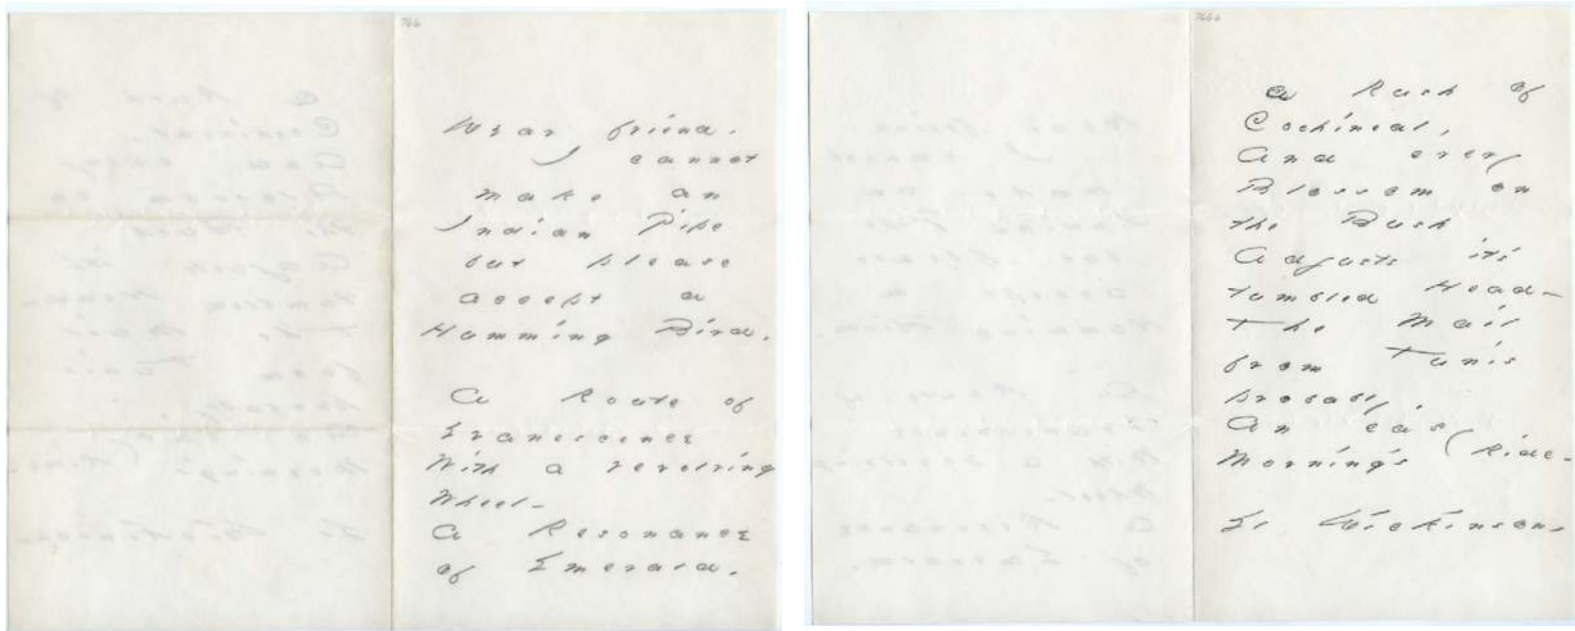 766
Dear friend.
I cannot
make an
Indian Pipe
but please
accept a
Humming Bird.
A Route of
Evanescence
With a revolving
Wheel–
A Resonance
of Emerald.
766a
A Rush of
Cochineal,
And every
Blossom on
the Bush
Adjusts its
tumbled Head–
The Mail
from Tunis
probably,
An easy
Morning's Ride–
E. Dickinson.